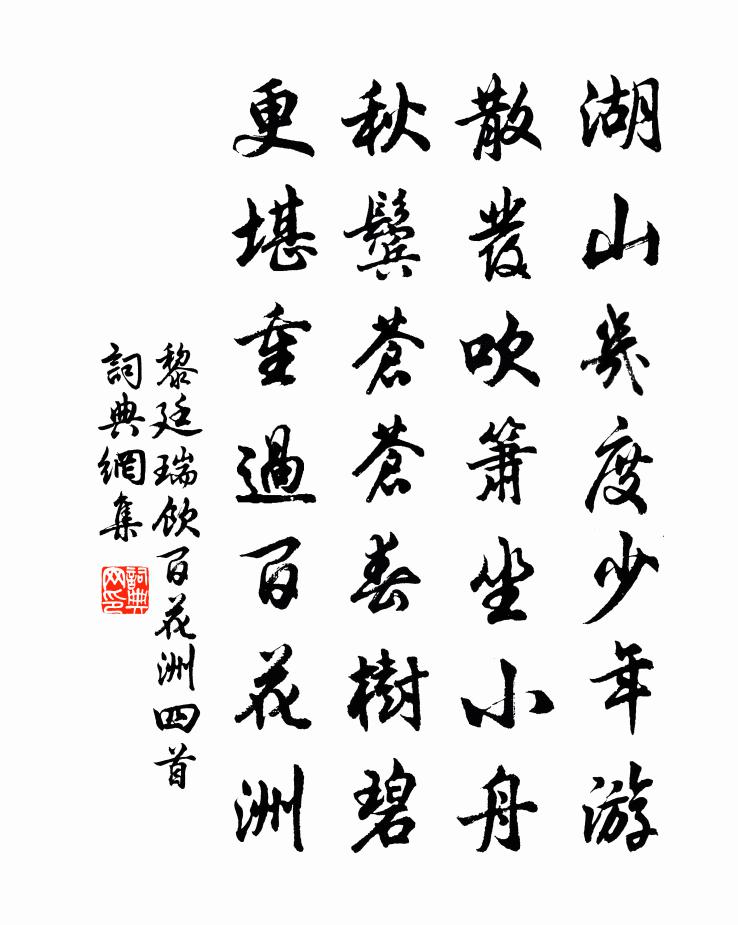 湖山幾度少年游
散發吹簫坐小舟
秋鬢蒼蒼春樹碧
更堪重過百花洲
黎廷瑞飲百花洲四首
詞典網集
詞典网印